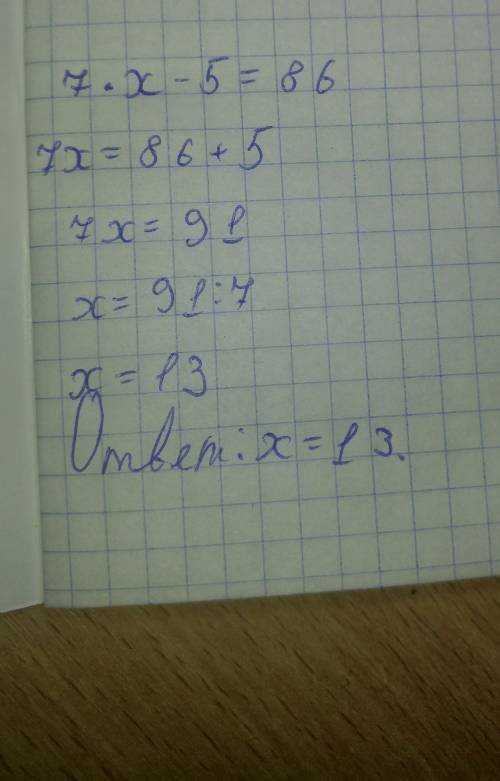 7 · x - 5 = 86
7x = 86 + 5
7x = 91
x = 91 : 7
x = 13
Ответ: x = 13.